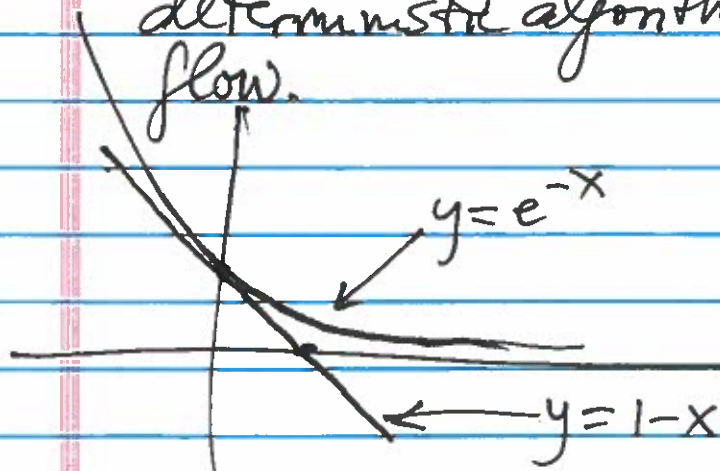 deterministic algorith
flow.
y = e^-x
y = 1-x